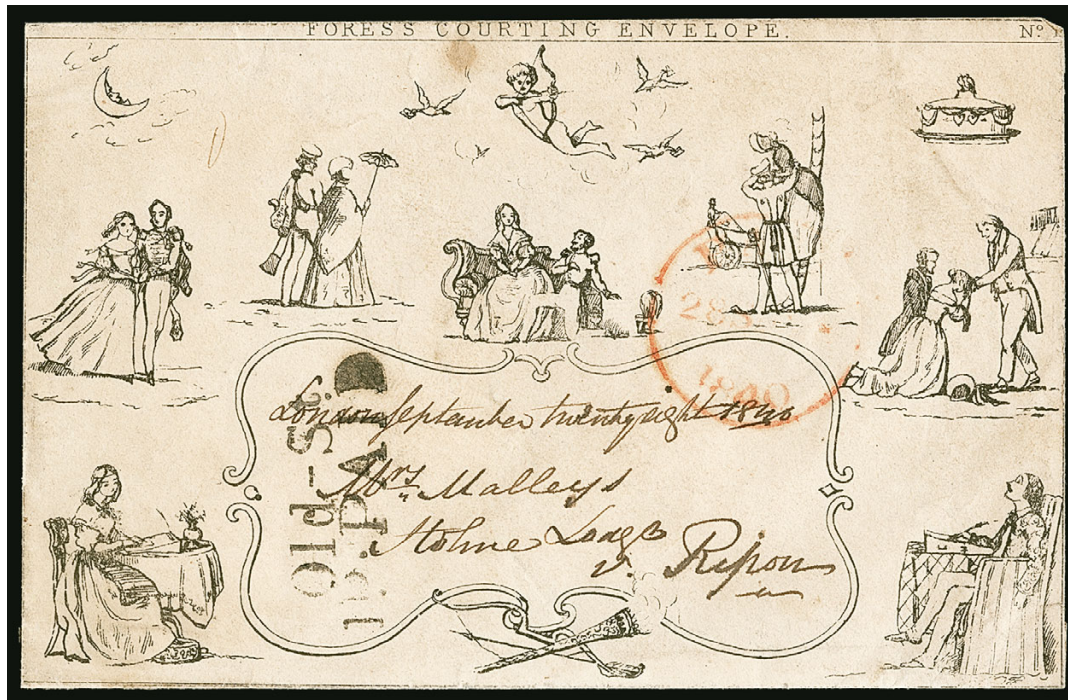 FORESS COURTING ENVELOPE.
No
28
1840
London September twenty eight 1840
Mrs Malleys
Holme Lodge
Ripon
Old-St
1D.PAID